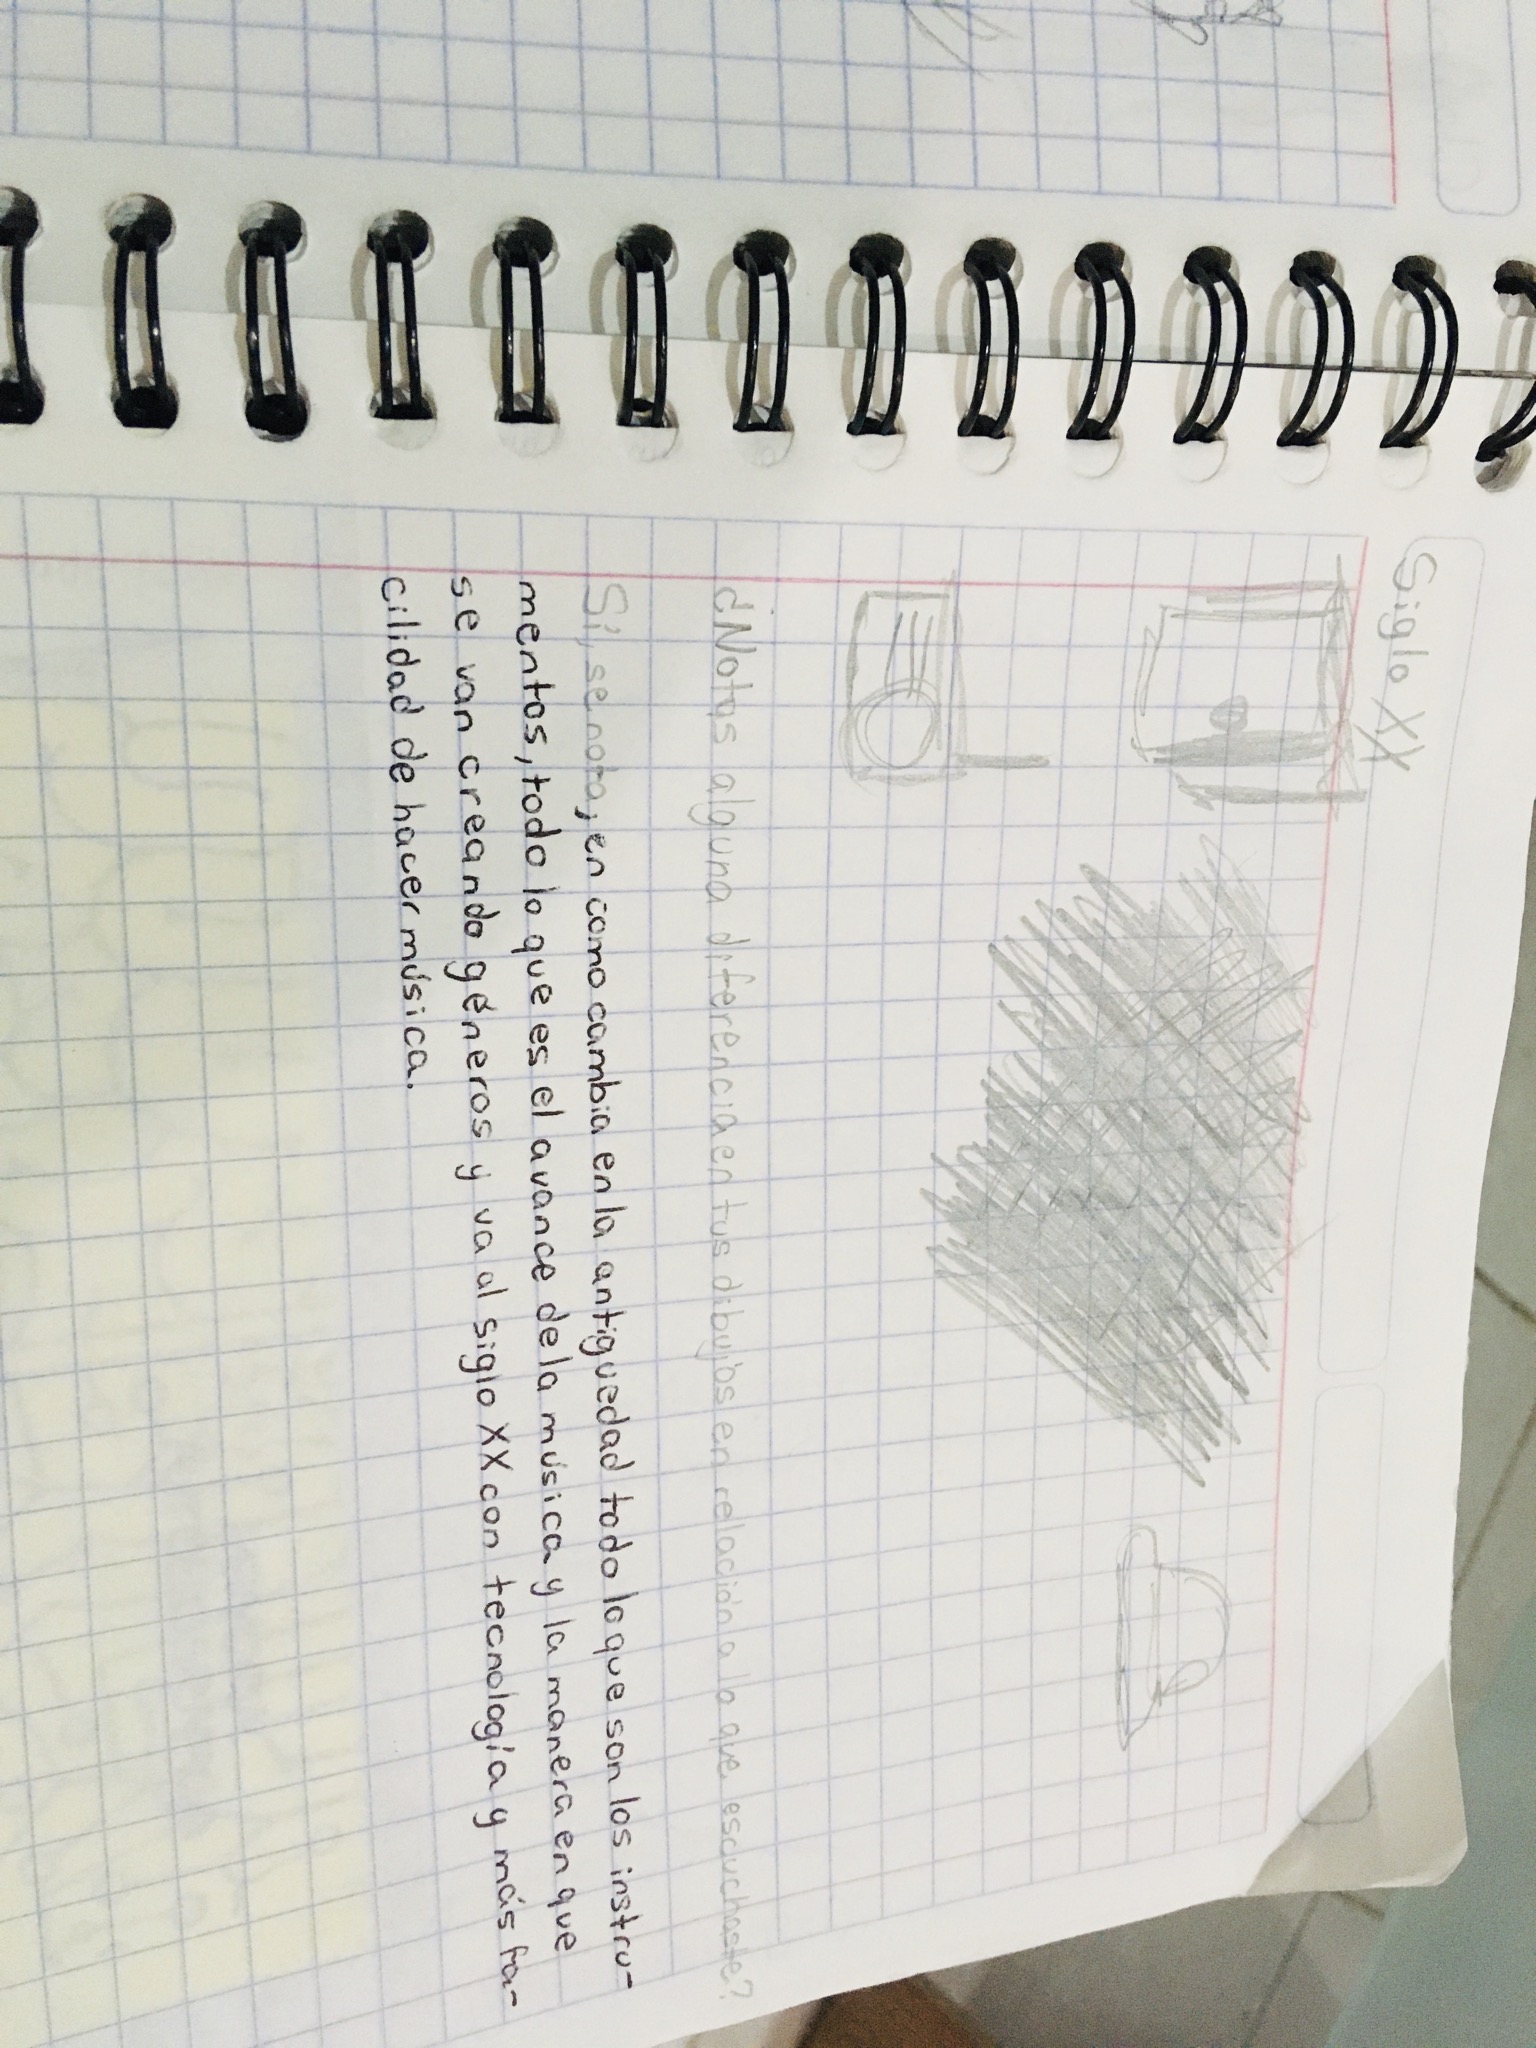 Siglo XX
¿Notas alguna diferencia en tus dibujos en relación a lo que escuchaste?
Sí, se nota, en como cambia en la antiguedad todo lo que son los instru-
mentos, todo lo que es el avance de la música y la manera en que
se van creando géneros y va al siglo XX con tecnología y más fa-
cilidad de hacer música.